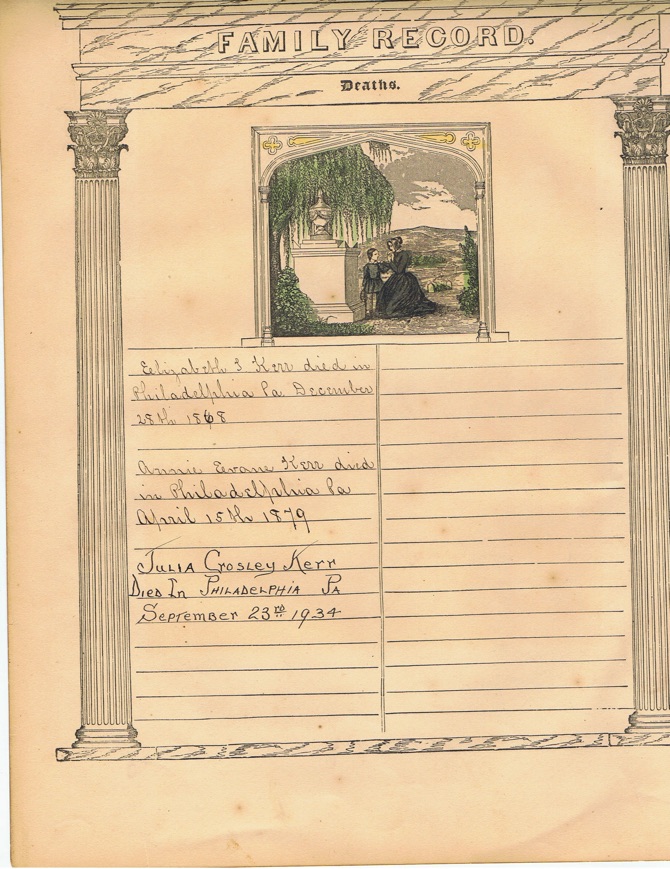 FAMILY RECORD.
Deaths.
Eelizabeth S Kerr died in
Philadelphia Pa December
28th 1868
Annie Eevans Kerr died
in Philadelphia Pa
April 15th 1879
Julia Crosley Kerr
Died In Philadelphia Pa
September 23rd 1934